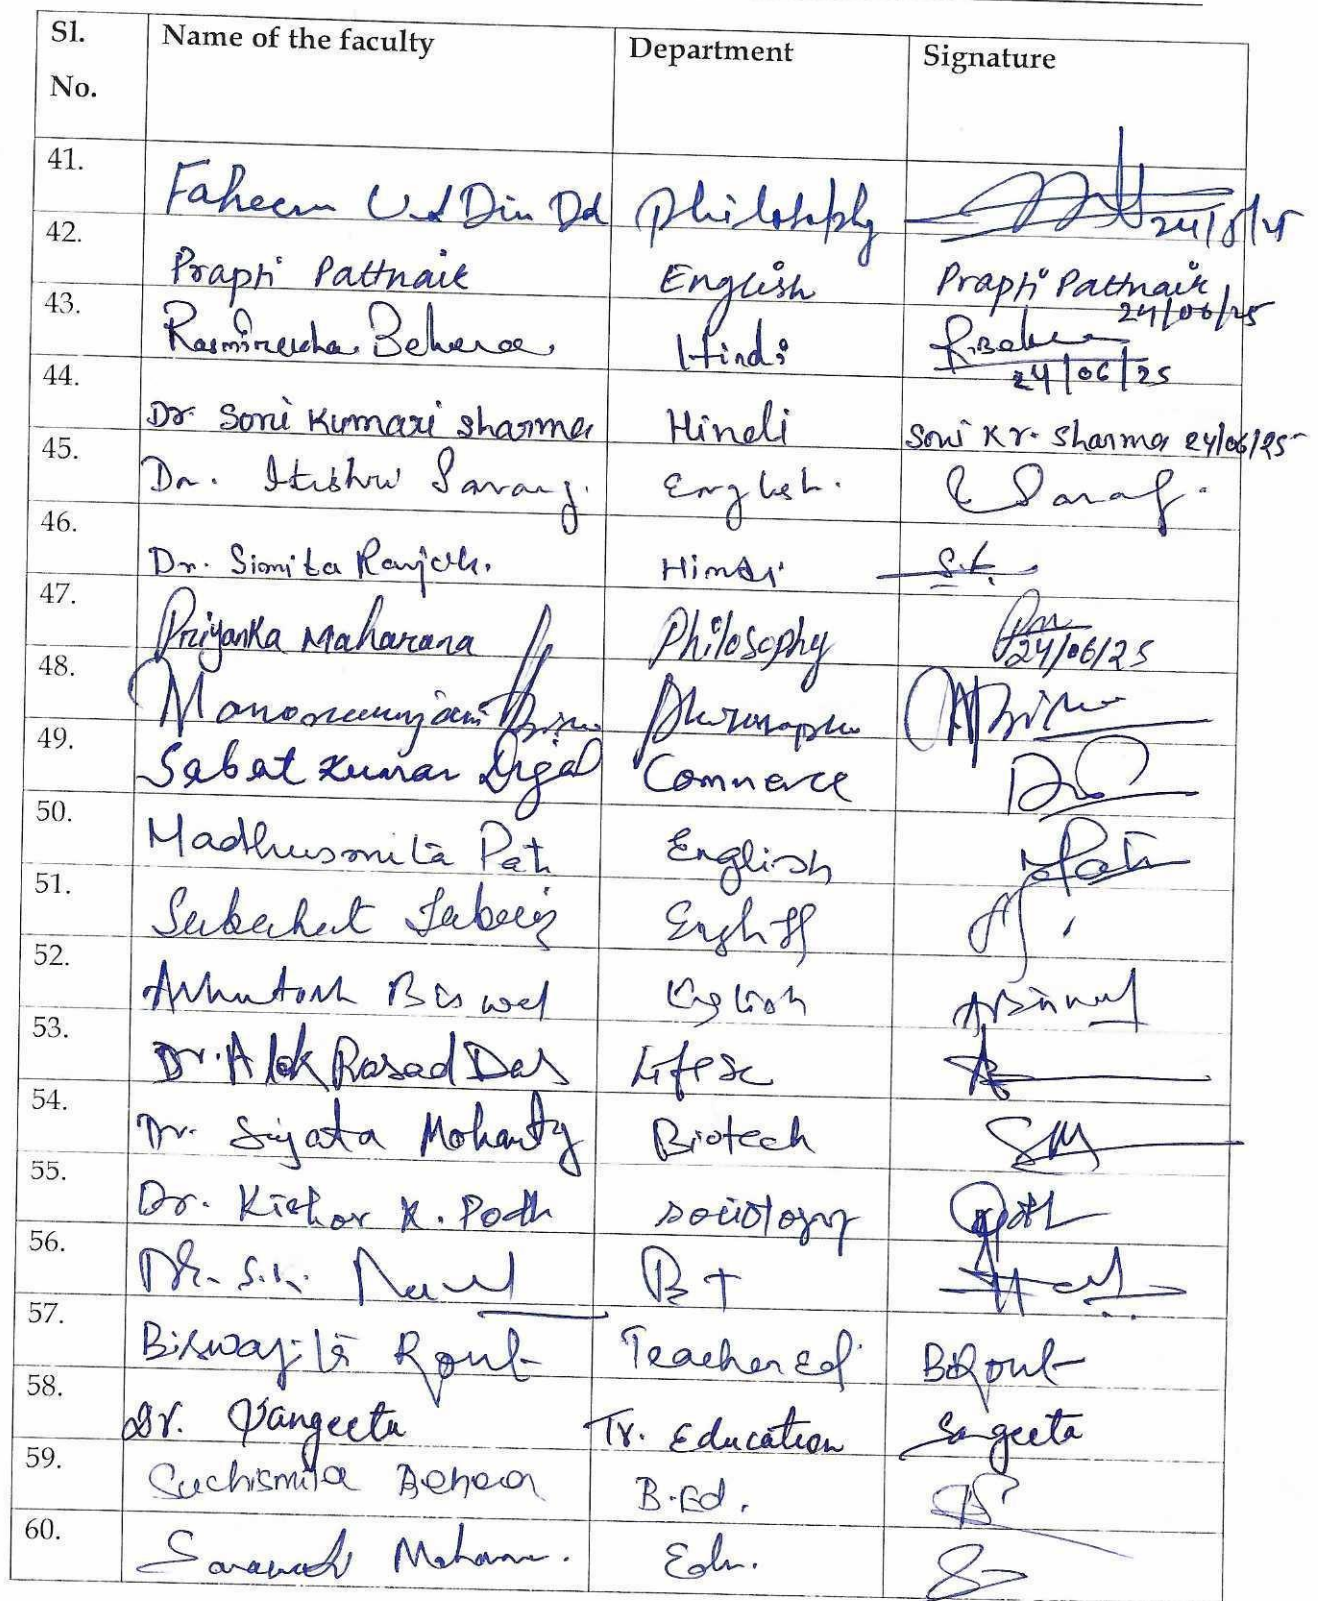 Sl. No. Name of the faculty Department Signature
41. Faheem Ud Din Dd Philosophy 24/6/25
42. Prapti Pattnaik English Prapti Pattnaik 24/06/25
43. Behera Hindi R.Behera 24/06/25
44. Dr. Soni Kumari Sharma Hindi Soni Kr. Sharma 24/06/25
45. Dr. Itishri Sarangi. English.
46. Dr. Simita Hindi
47. Priyanka Maharana Philosophy 24/06/25
48.
49. Sabat Kumar Digal Commerce
50. Madhusmita Pati English Pati
51. English
52. Ashutosh Biswal English
53. Dr. Alok Prasad Das Life Sc
54. Dr. Sujata Mohanty Biotech SM
55. Dr. Kishor K. Podh Sociology
56. Dr. S.K. BT
57. Biswajit Rout Teacher Ed. BRout
58. Dr. Sangeeta Tr. Education Sangeeta
59. Suchismita Behera B.Ed.
60. Edn.